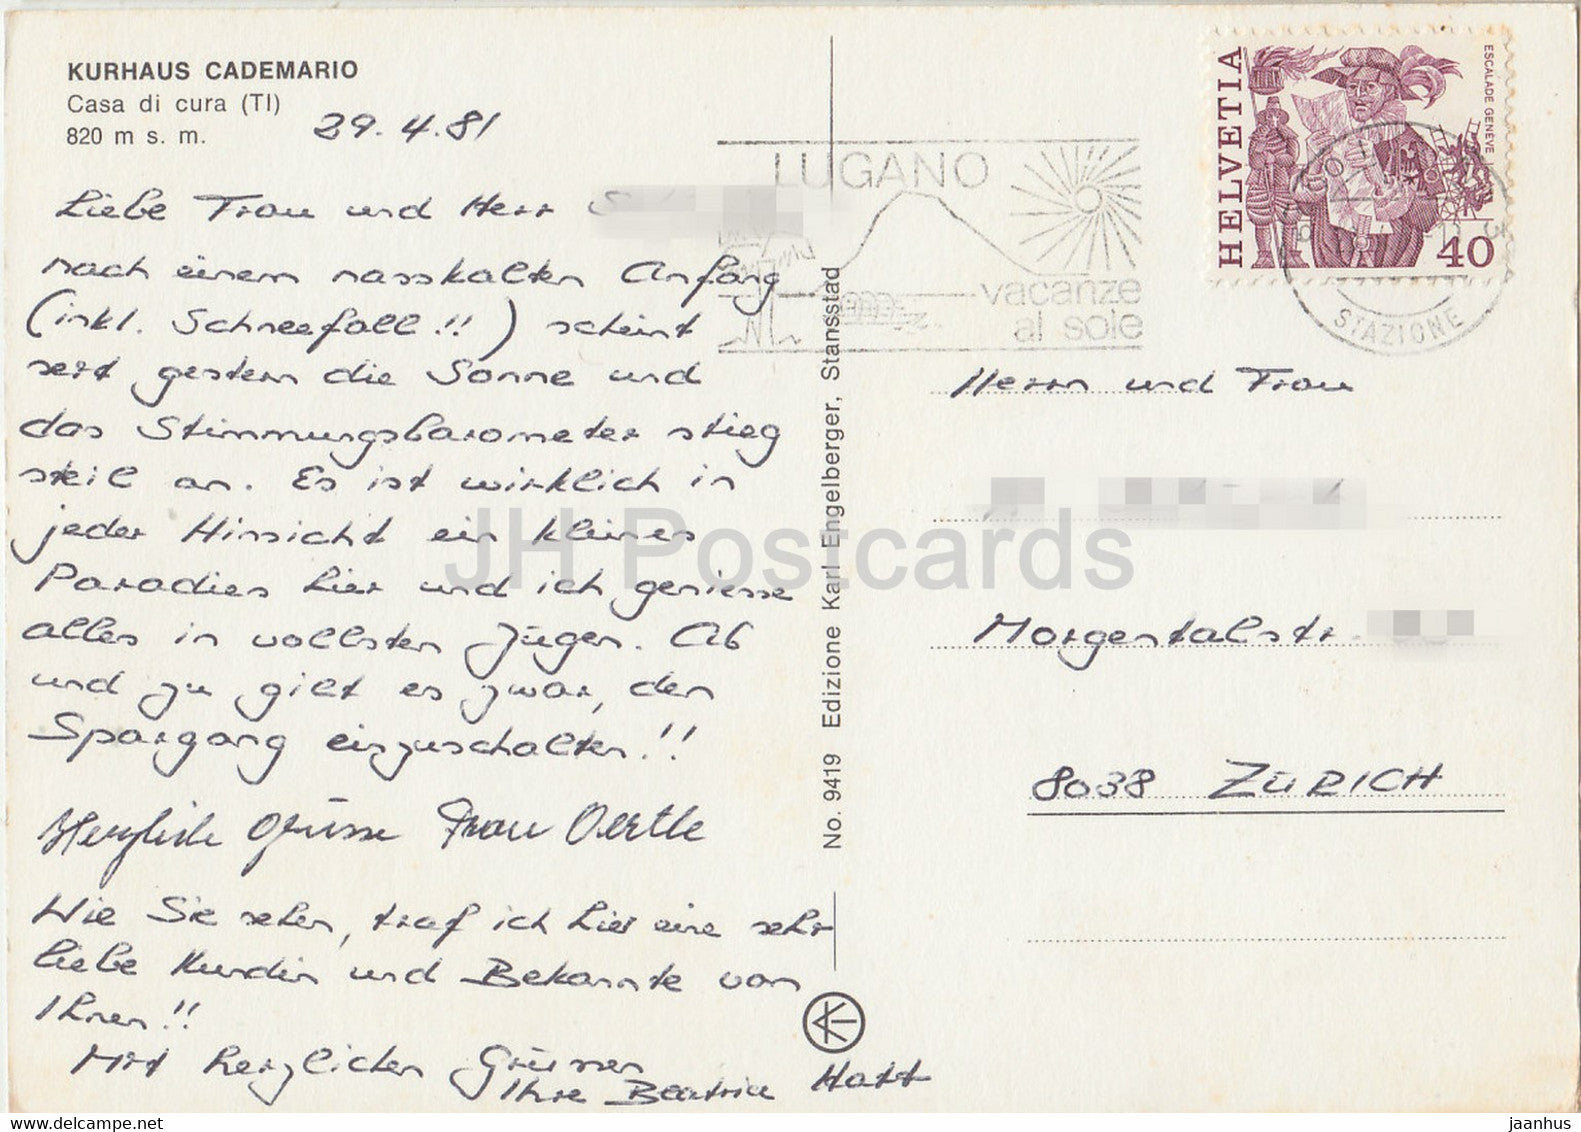 KURHAUS CADEMARIO
Casa di cura (TI)
820 m s. m.
29.4.81
Liebe Frau und Herr
nach einem nasskalten Anfang
(inkl. Schneefall!!) scheint
seit gestern die Sonne und
das Stimmungsbarometer stieg
steil an. Es ist wirklich in
jeder Hinsicht ein kleines
Paradies hier und ich geniesse
alles in vollsten Zügen. Ab
und zu gilt es zwar, den
Spargang einzuschalten!!
Herzliche Grüsse Frau Oertle
Wie Sie sehen, traf ich hier eine sehr
liebe Kundin und Bekannte von
Ihnen!!
Mit herzlichen Grüssen
Ihre Beatrice Hatt
No. 9419 Edizione Karl Engelberger, Stansstad
LUGANO
vacanze
al sole
HELVETIA
ESCALADE GENÈVE
40
STAZIONE
Herrn und Frau
Morgentalstr.
8038 ZÜRICH
JH Postcards
https://www.delcampe.net
jaanhus